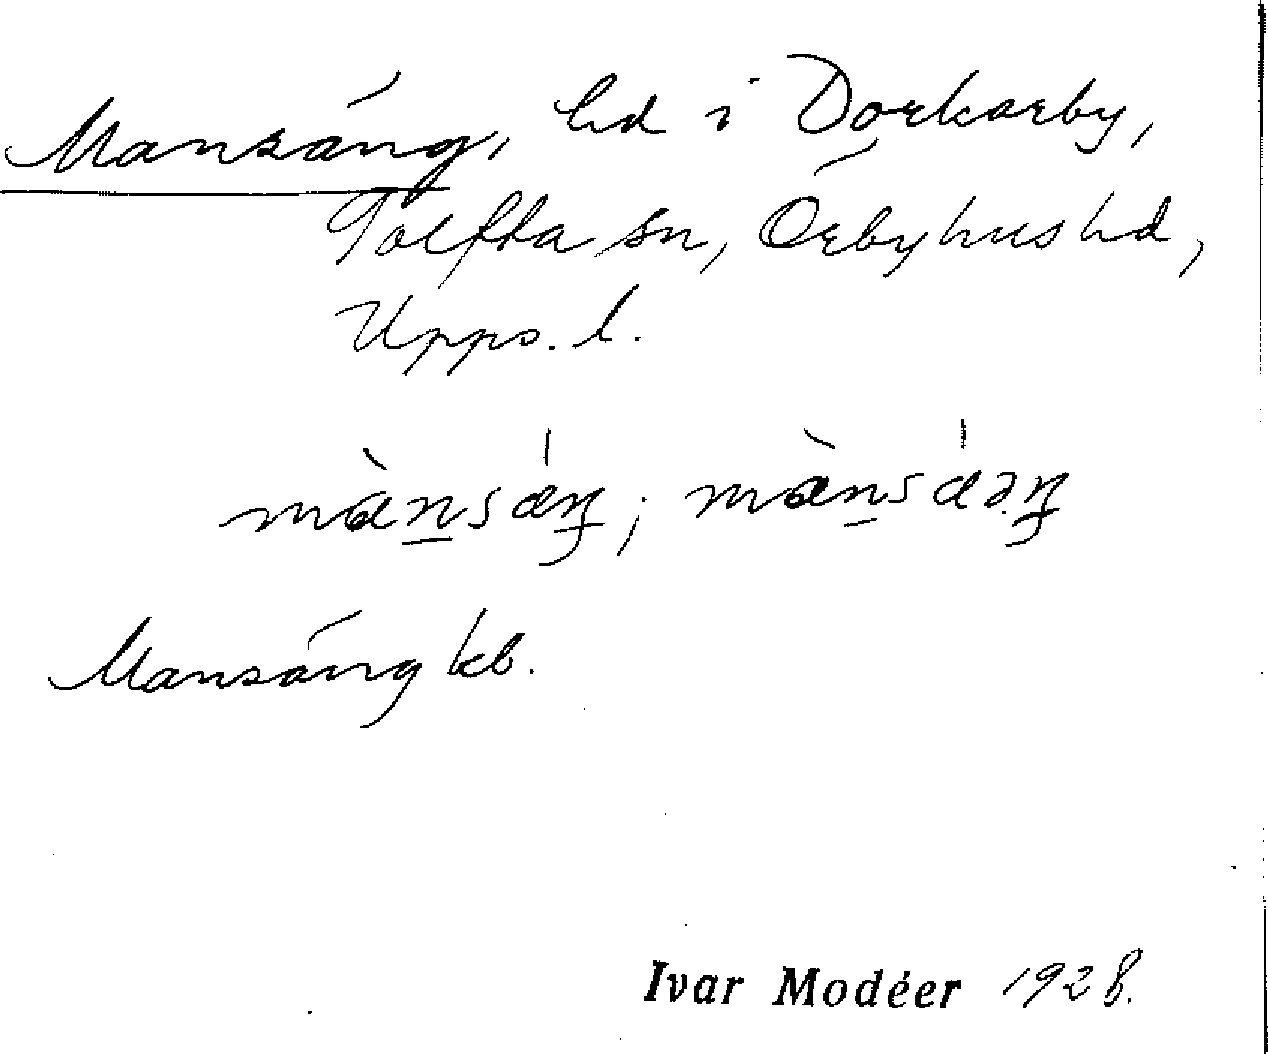 Mansäng, hd i Dorkarby,
Tolfta sn, Örbyhus hd,
Upps. l.
mànsǽŋ; mànsǽəŋ
Mansäng kb.
Ivar Modéer 1928.